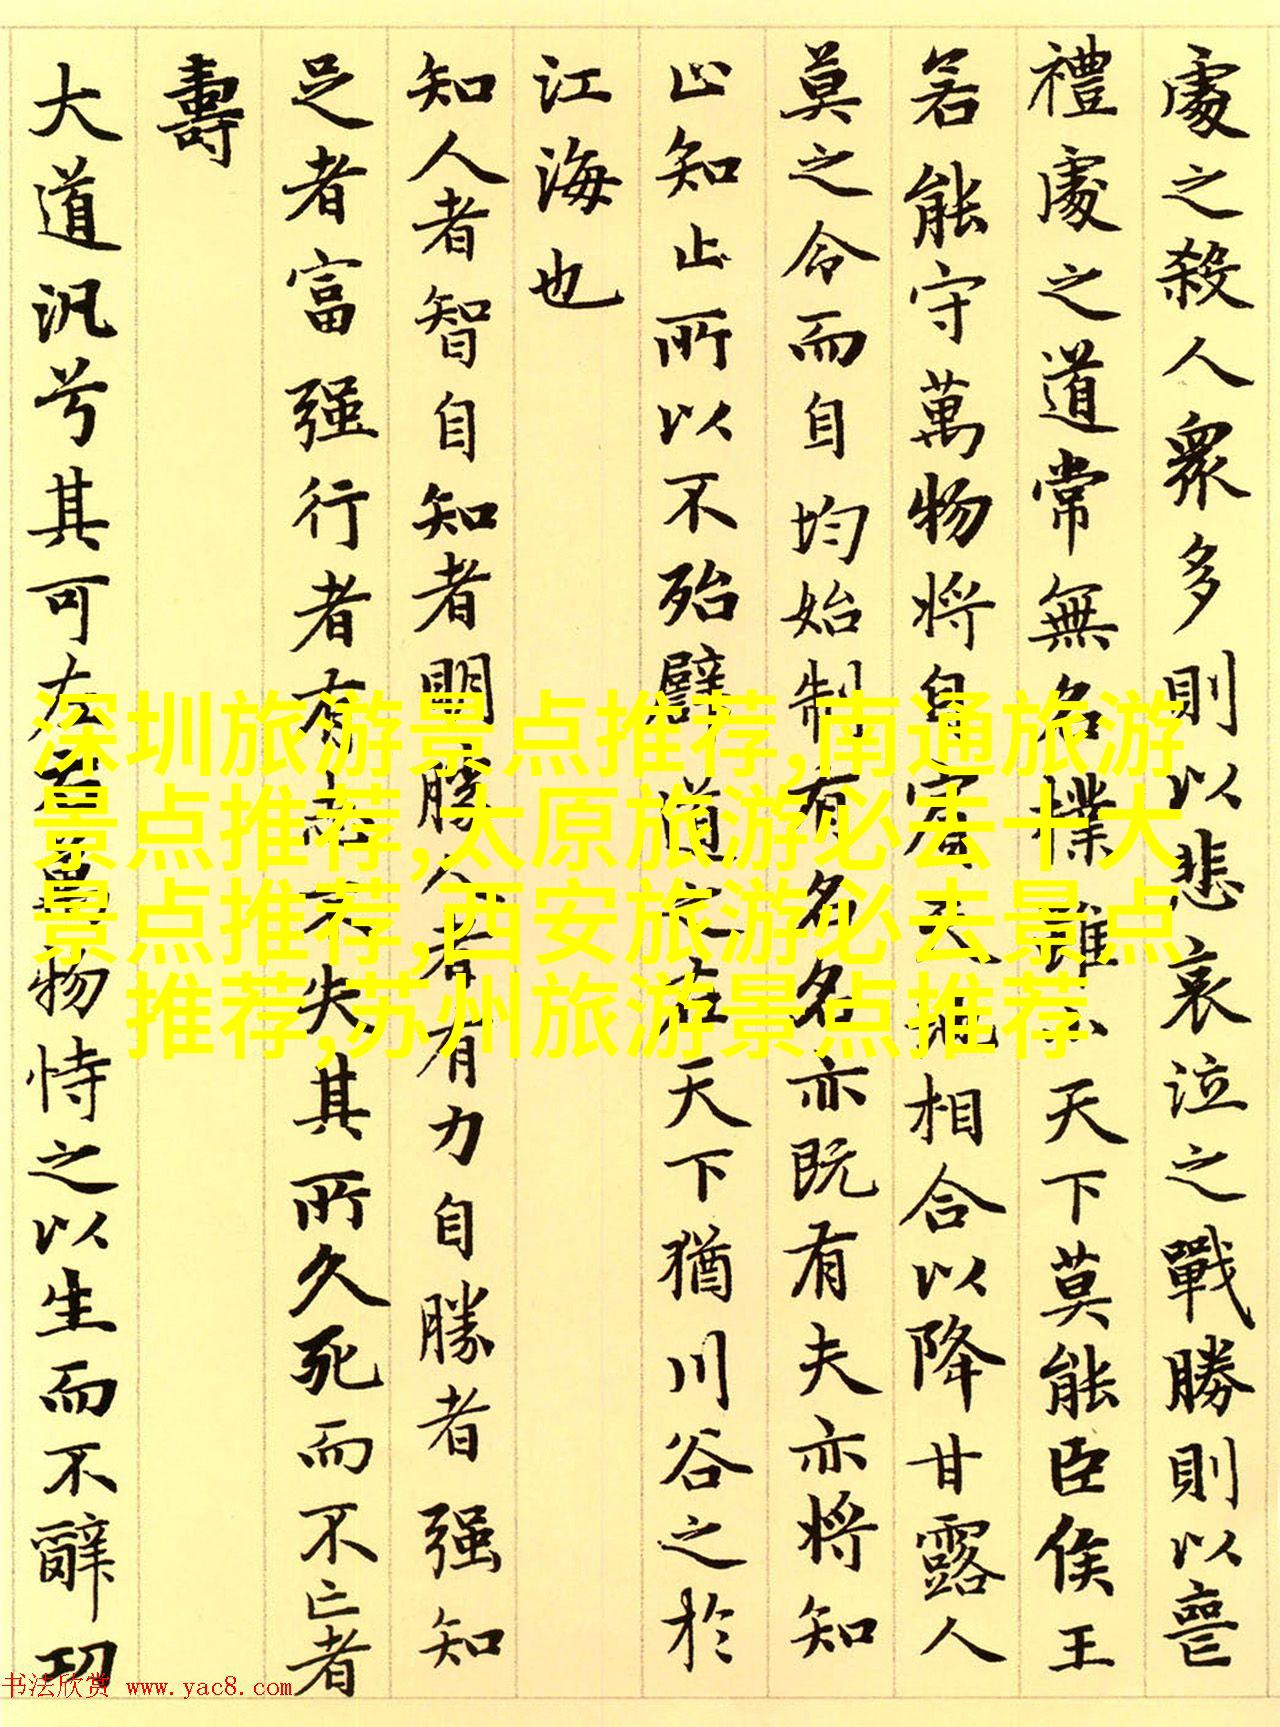 處之殺人衆多則以悲哀泣之戰勝則以喪
禮處之道常無名樸雖小天下莫能臣侯王
若能守萬物將自賓天地相合以降甘露人
莫之令而自均始制有名名亦既有夫亦將知
止知止所以不殆譬道之在天下猶川谷之於
江海也
知人者智自知者明勝人者有力自勝者强知
足者富强行者有志不失其所久死而不亡者
壽
大道汎兮其可左右萬物恃之以生而不辭功
深圳旅游景点推荐,南通旅游
景点推荐,太原旅游必去十大
景点推荐,西安旅游必去景点
推荐,苏州旅游景点推荐
书法欣赏 www.yac8.com